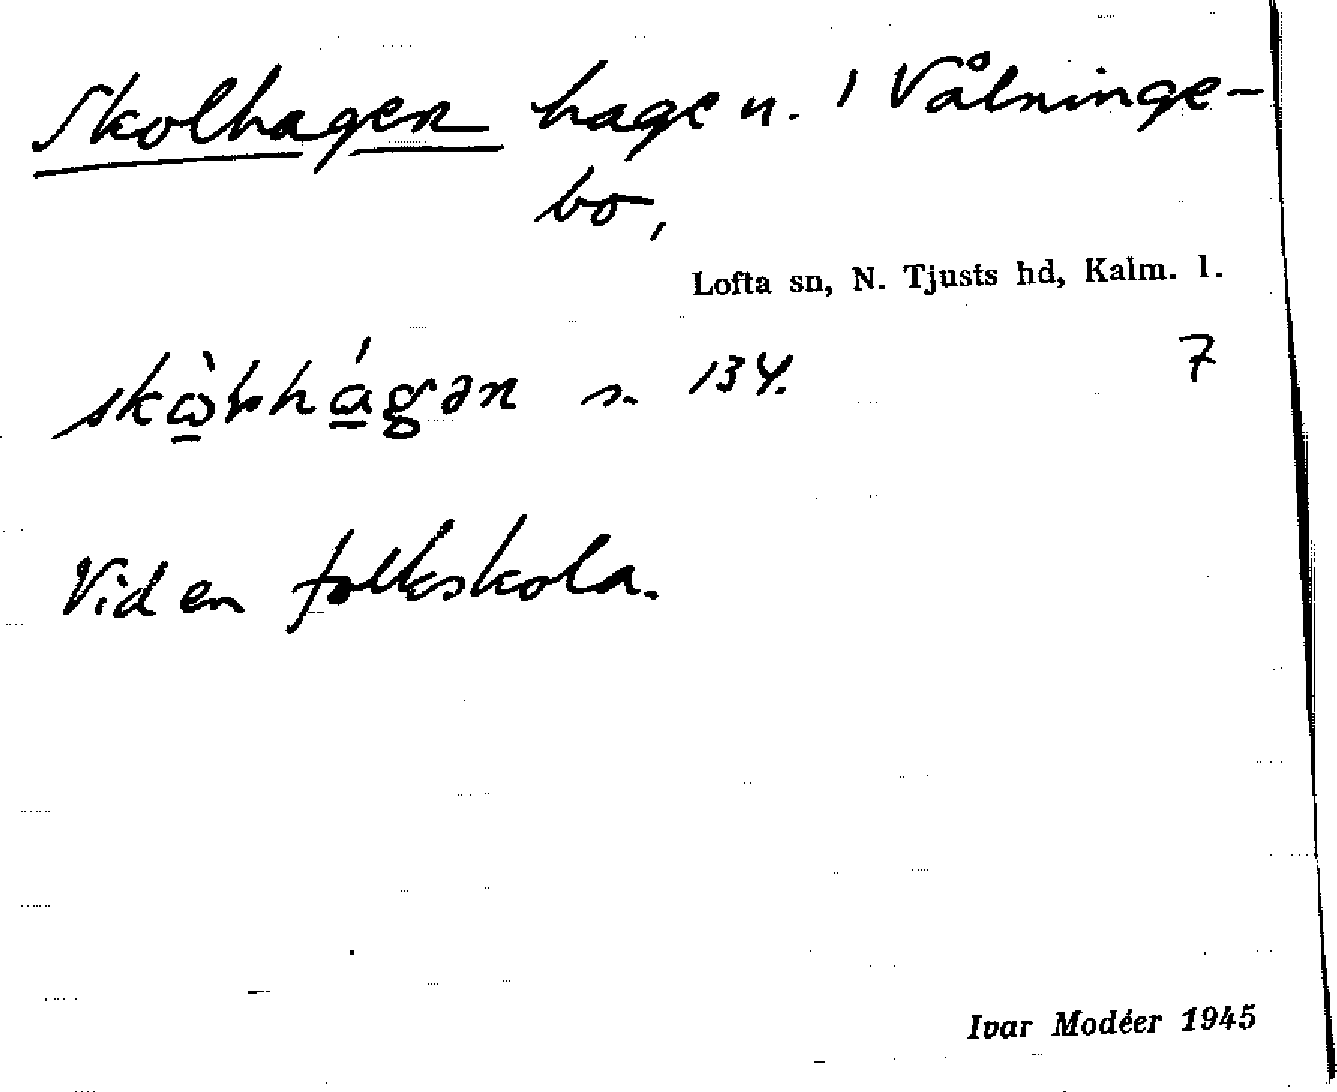 Skolhagen hage n. i Vålninge-
bo,
Lofta sn, N. Tjusts hd, Kalm. l.
7
s. 134.
Vid en folkskola.
Ivar Modéer 1945